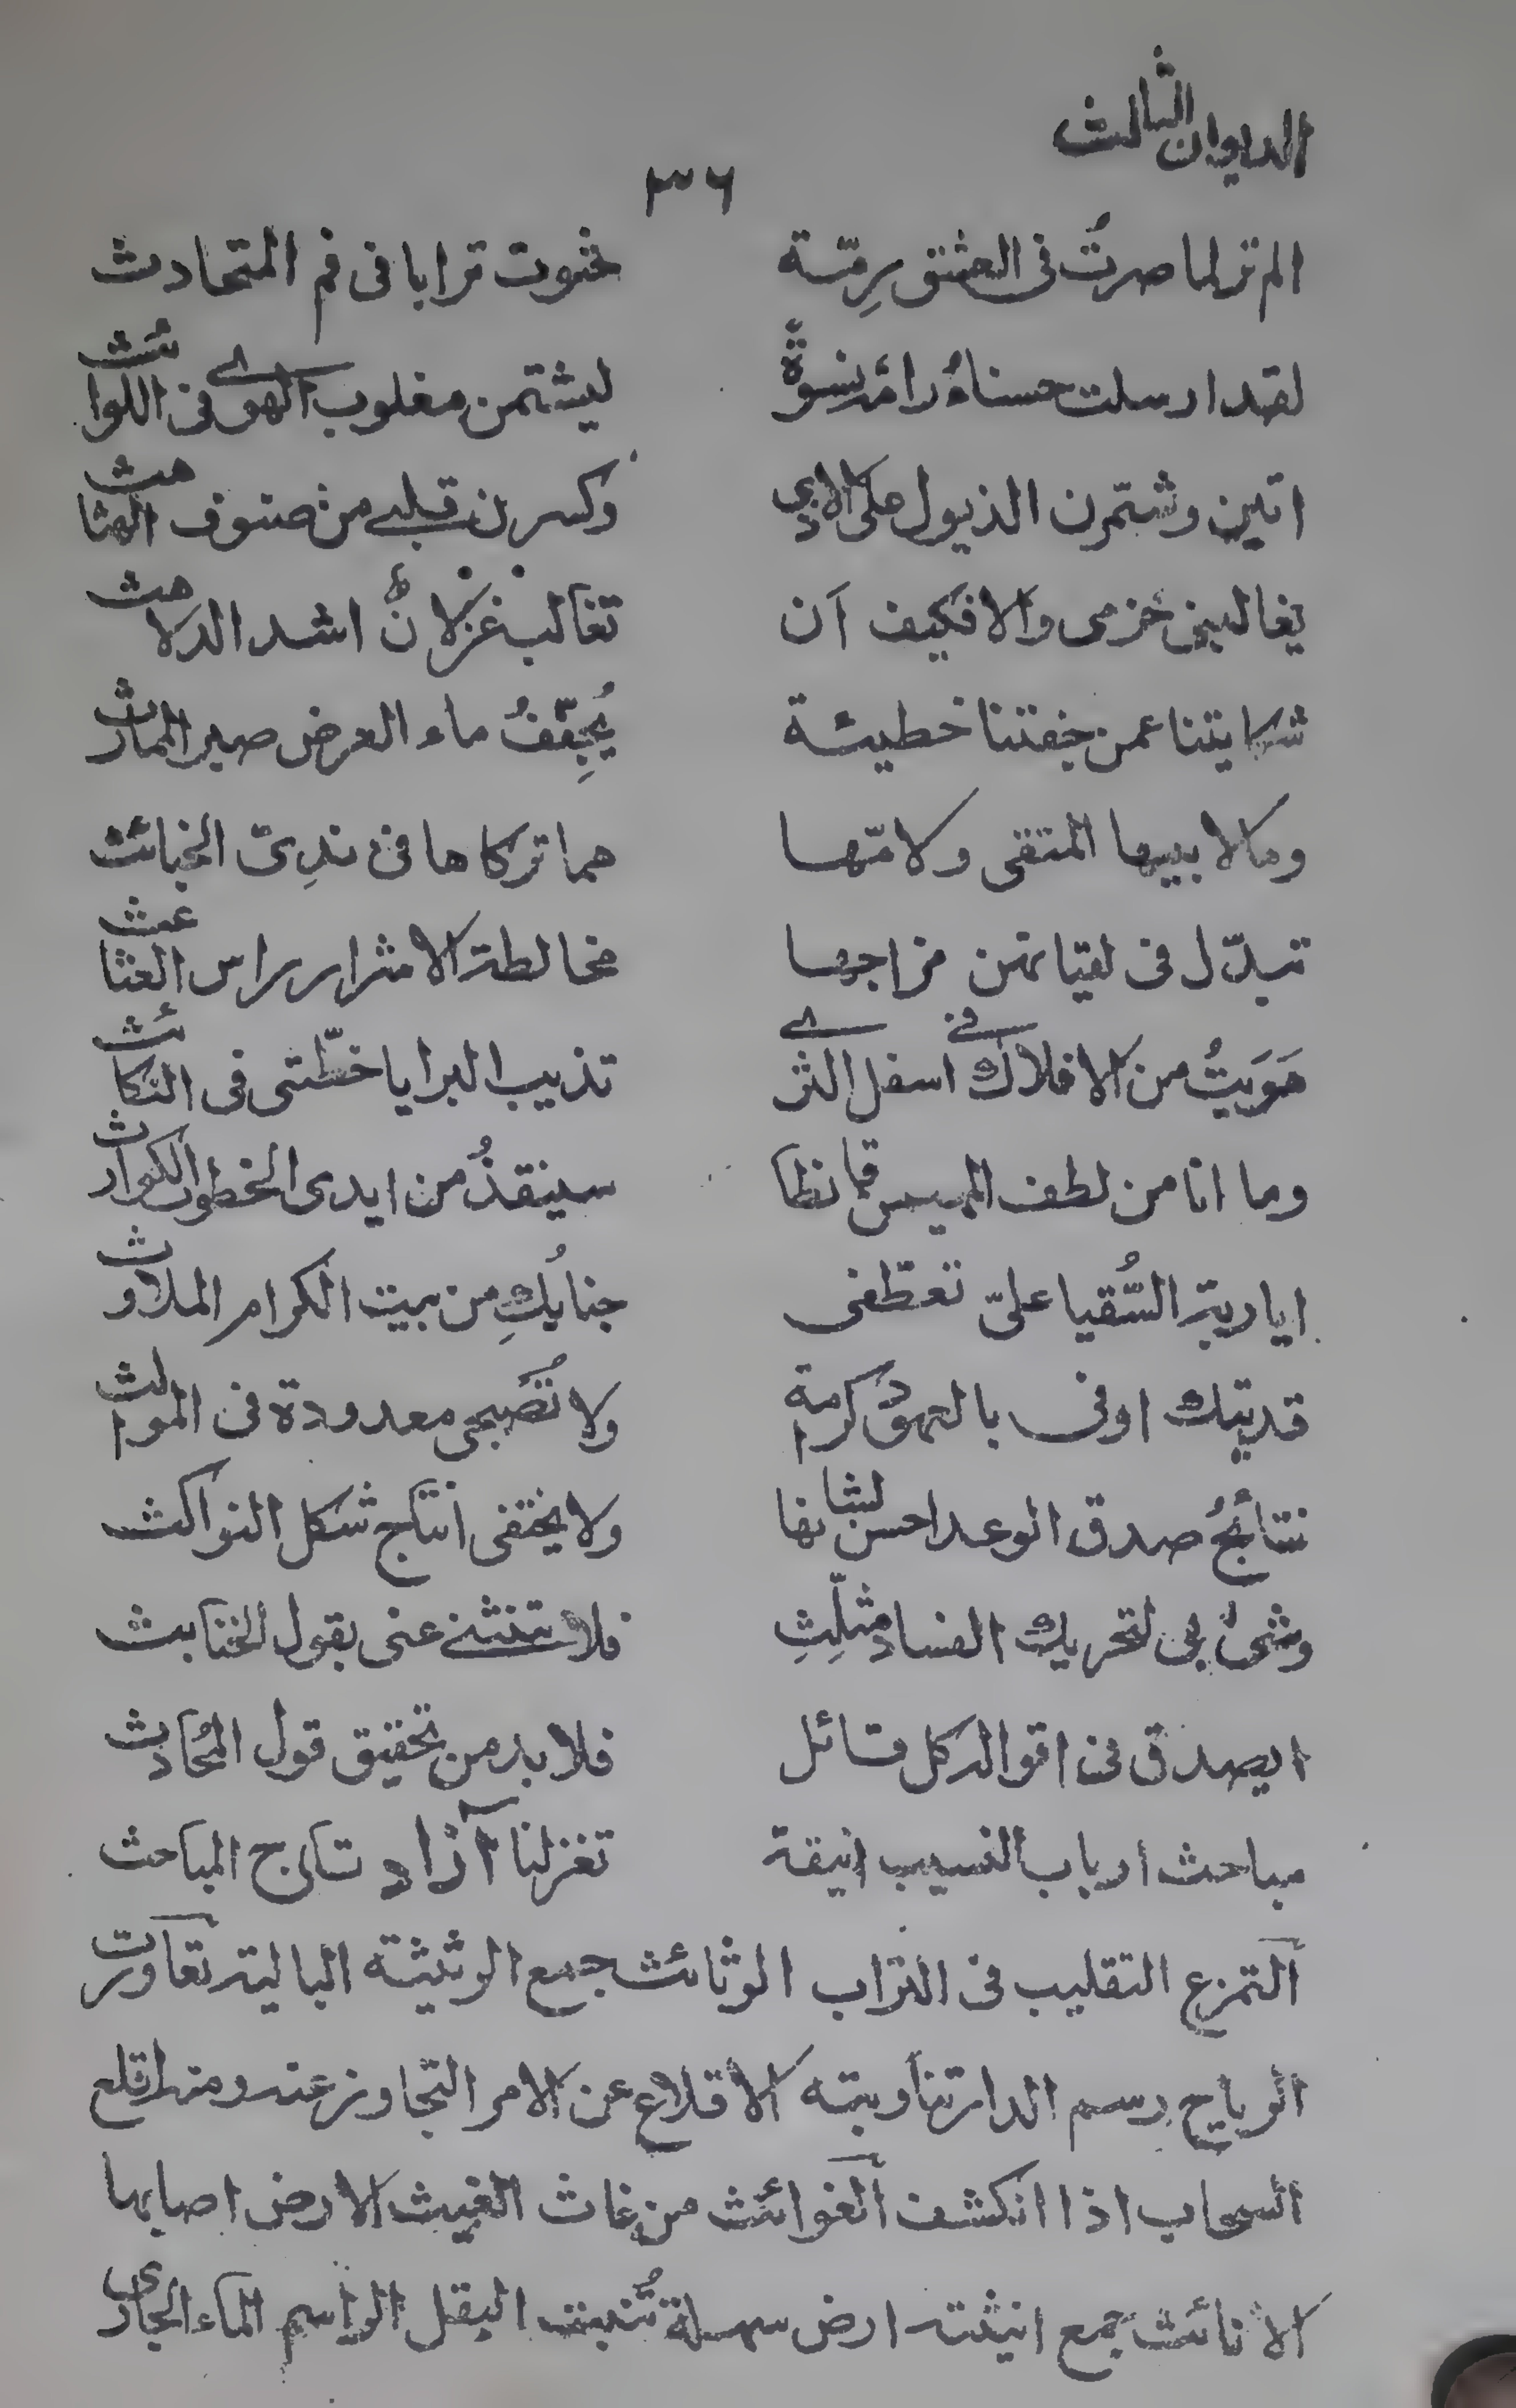 الديوان الثالث
٣٦
الم تر لما صرتُ فى العشق رِمّة فحثوت ترابا فى فم المتحادث
لقد ارسلت حسناءُ رامَة نِسوَةً ليشتمن مغلوب الهوى فى اللوائث
اتين وشمّرن الذيول على الاذى وكسرن قلبى من صنوف الهثاهث
يغالبنى خزمى والا فكيف ان تغالب غزلانٌ اشد الدلاهث
شكايتنا عمن جفتنا خطيئة يُجفِّفُ ماء العرض صير الممارث
وكلا بيها المتقى ولامّها هما تركاها فى ندِىّ الخبائث
تبدّل فى لقيانهن مزاجها مخالطة الاشرار راس العثاعث
هَوَيتُ من الافلاك فى اسفل الثرى تذيب البرايا خطّتى فى النكائث
وما انا من لطف المهيمن قانطا سينقذُ من ايدى الخطوب الكوارث
ايا ربة السُّقيا علىّ تعطّفى جنابُكِ من بيت الكرام الملاوث
فديتك اوفى بالعهود كرامة ولا تُصبحى معدودة فى الموالث
نتائجُ صدق الوعد احسن لشانها ولا يختفى انتاج شكل النواكث
وشىٌ بى لتحريك الفساد مثلِّثِ فلا تنثنى عنى بقول الخنابث
ايصدق فى اقواله كل قائل فلا بد من تحقيق قول المُحادث
مباحث ارباب النسيب انيقة تغزلنا آزاد تاج المباحث
التمزع التقليب فى التراب الوثائث جمع الوثيثة البالية تعاورت
الرياح رسم الدار تناوبته الاقلاع عن الامر التجاوز عنه ومنه اقلع
السحاب اذا انكشف الغوائث من غاث الغيث الارض اصابها
الانائث جمع انيثة ارض سهلة تُنبت البقل الواسم الماء الجارى